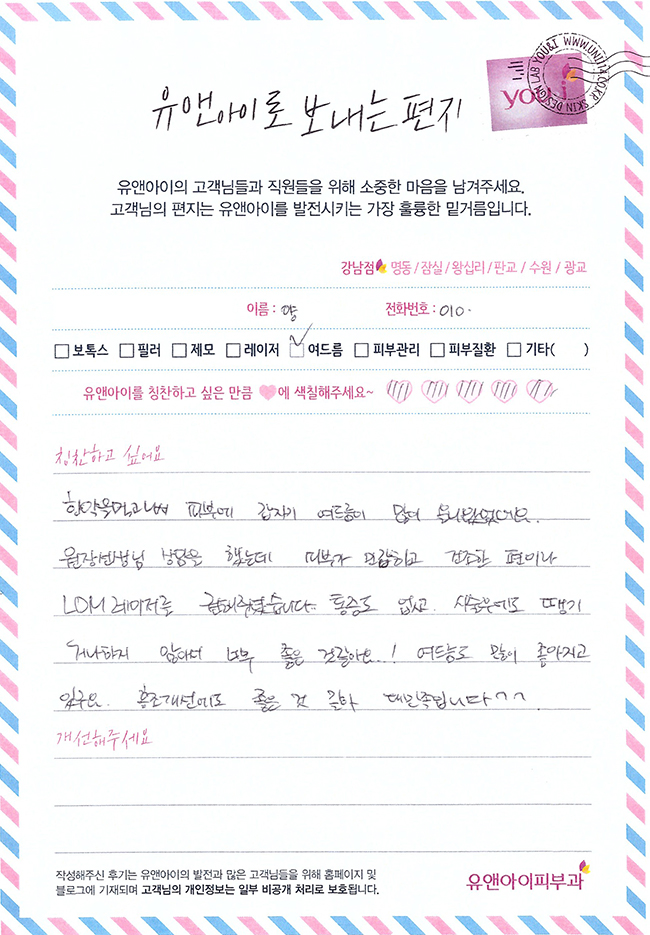 유앤아이로 보내는 편지
you&i
SKIN DESIGN LAB YOU&I WWW.UNI114.CO.KR
유앤아이의 고객님들과 직원들을 위해 소중한 마음을 남겨주세요.
고객님의 편지는 유앤아이를 발전시키는 가장 훌륭한 밑거름입니다.
강남점 명동/잠실/왕십리/판교/수원/광교
이름 : 양 전화번호 : 010-
보톡스 필러 제모 레이저 여드름 피부관리 피부질환 기타( )
유앤아이를 칭찬하고 싶은 만큼 에 색칠해주세요~
칭찬하고 싶어요
한약을 먹고나서 피부에 갑자기 여드름이 많이
원장선생님 상담을 했는데 피부가 민감하고 건조한 편이라
LDM 레이저를 해주셨습니다. 통증도 없고. 시술후에도 땡기
거나하지 않아서 너무 좋은 것같아요...! 여드름도 많이 좋아지고
있구요. 홍조개선에도 좋은 것 같아 대만족입니다^^
개선해주세요
작성해주신 후기는 유앤아이의 발전과 많은 고객님들을 위해 홈페이지 및
블로그에 기재되며 고객님의 개인정보는 일부 비공개 처리로 보호됩니다.
유앤아이피부과